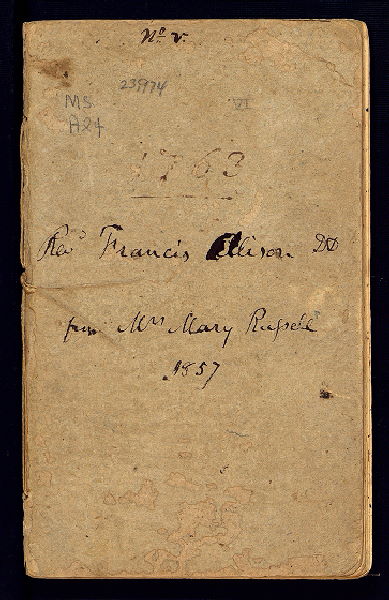 No v.
23974
MS
A24
VI
1763
Revd Francis Alison DD
from Mrs Mary Russell
1857